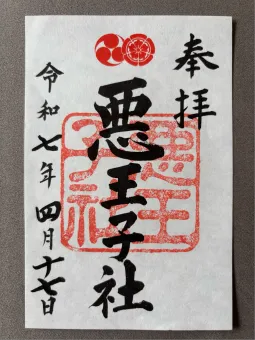 奉拝
悪王子社
令和七年四月十七日
悪王
子社